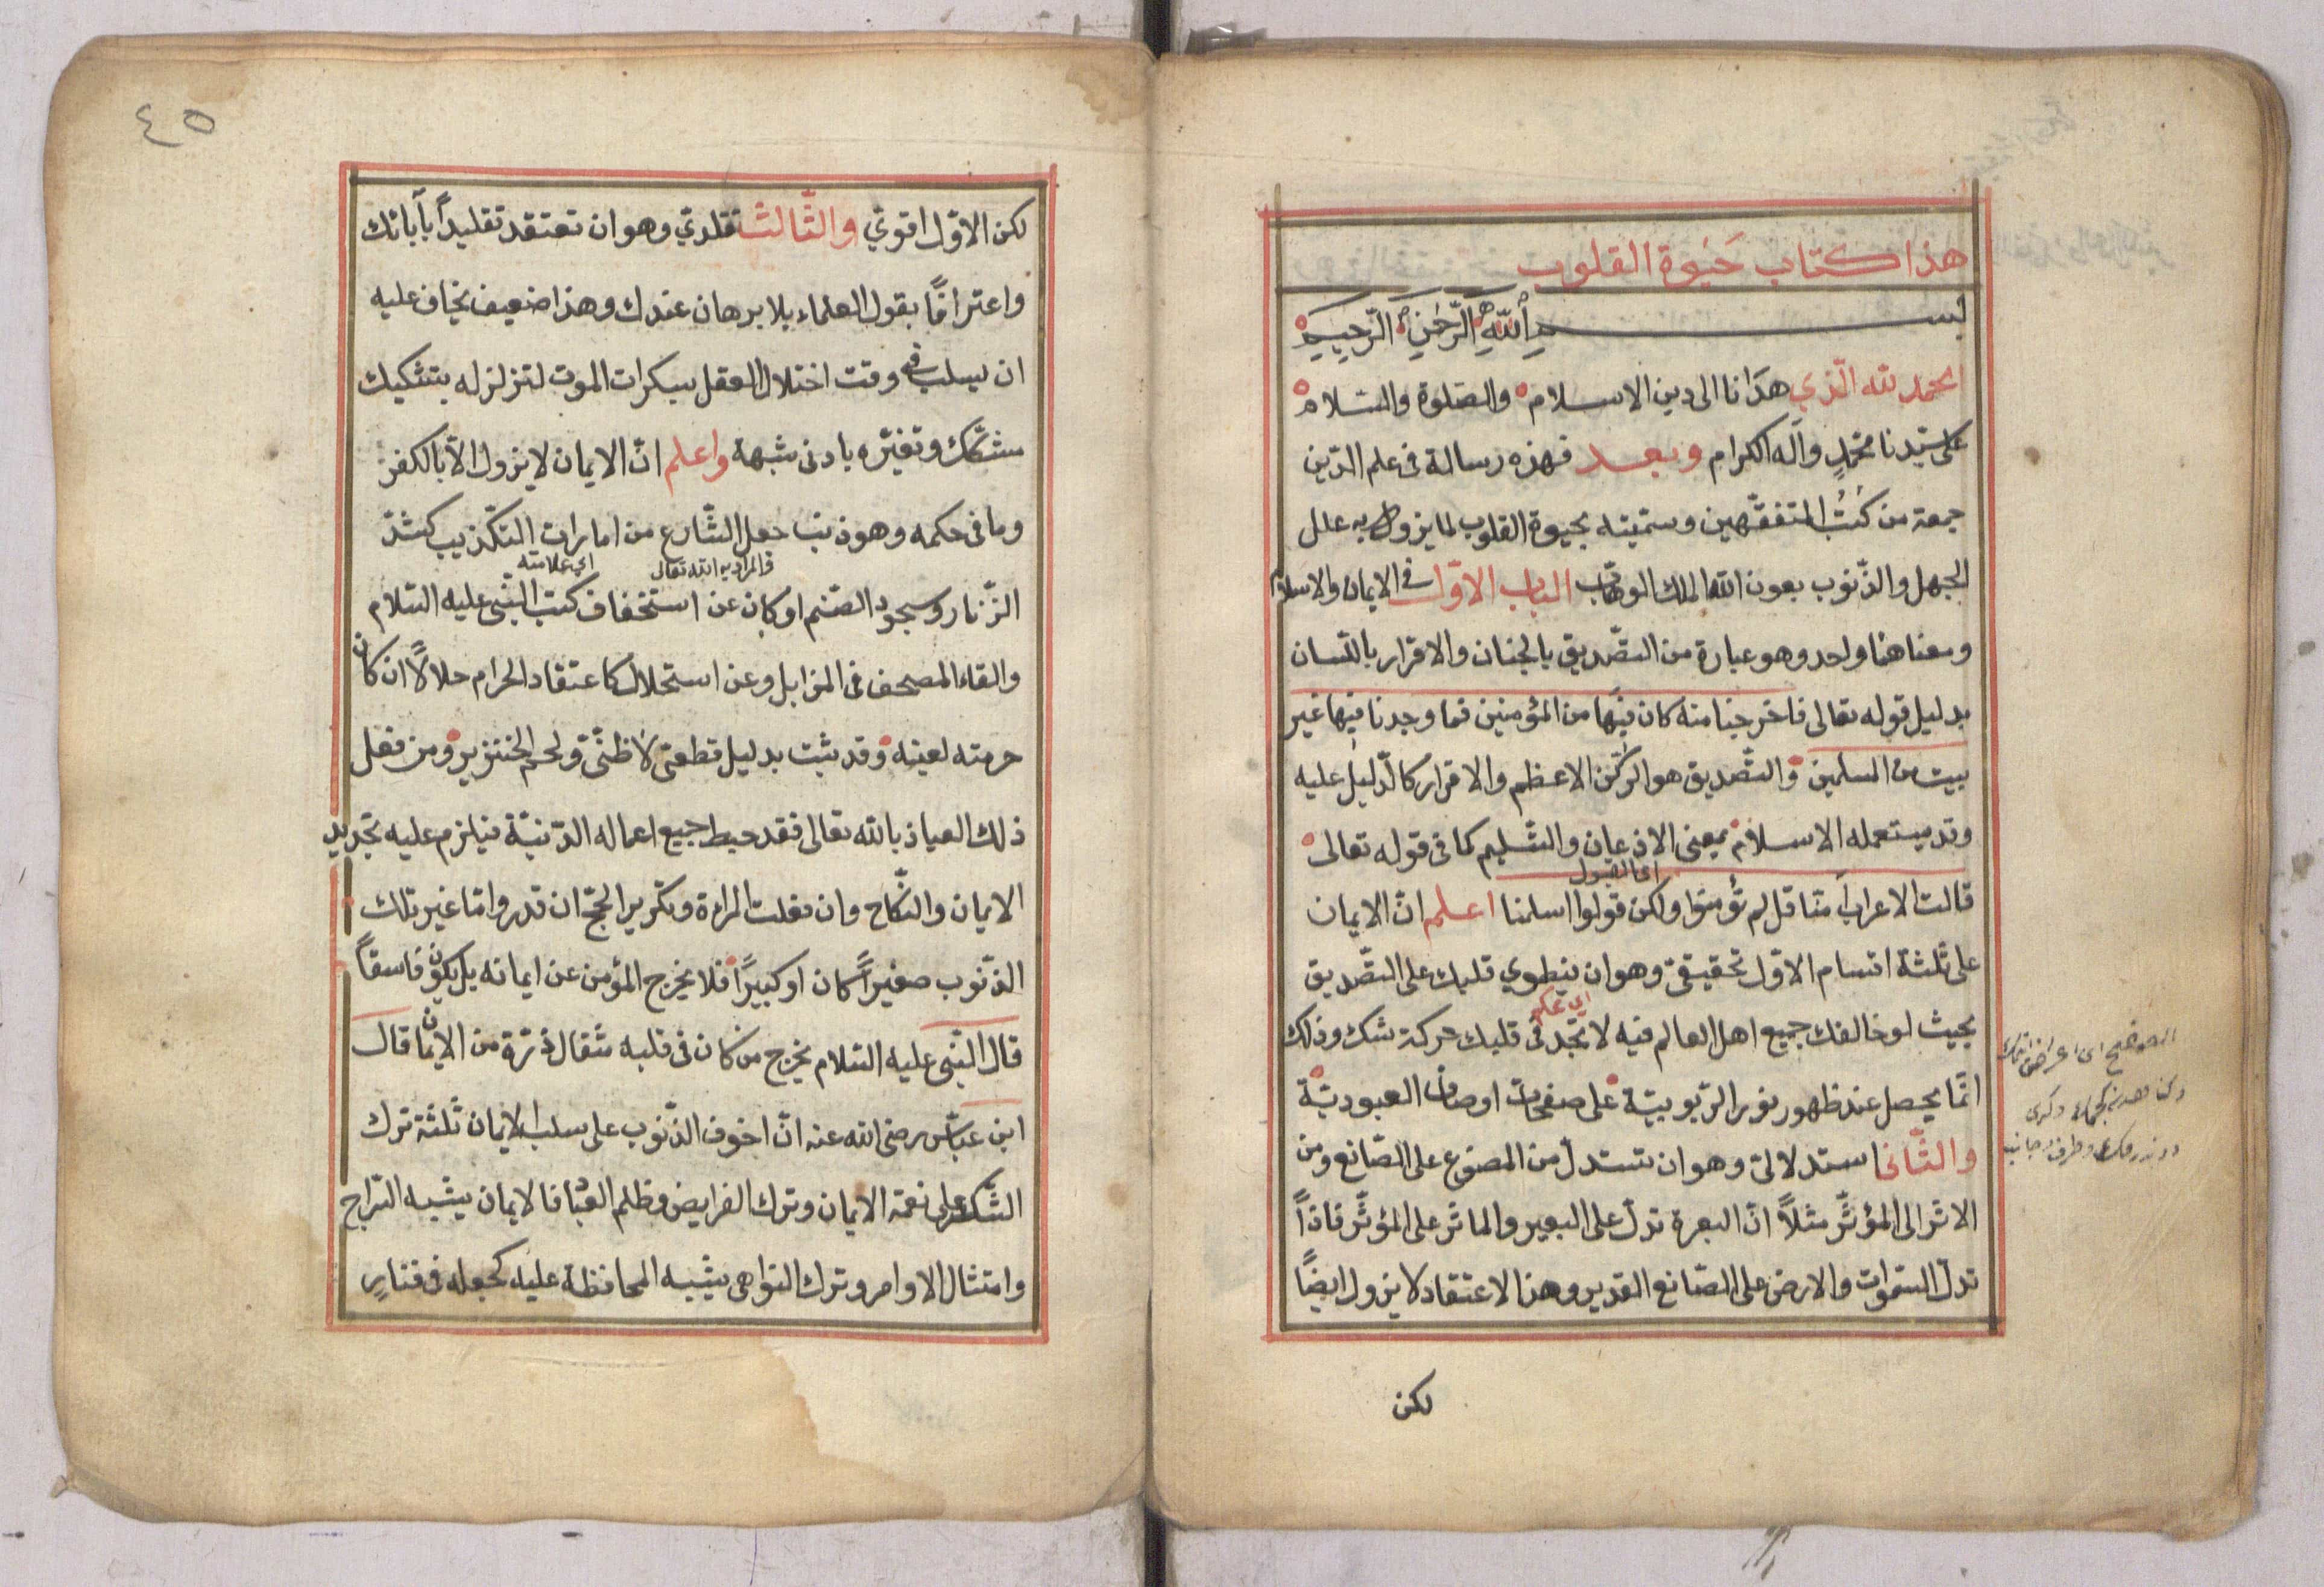 هذا كتاب حيوة القلوب
بسم الله الرحمن الرحيم
الحمد لله الذي هدانا الى دين الاسلام والصلوة والسلام
على سيدنا محمد وآله الكرام وبعد فهذه رسالة فى علم الدين
جمعته من كتب المتفقهين وسميته بحيوة القلوب لما يزول به علل
الجهل والذنوب بعون الله الملك الوهاب الباب الاول فى الايمان والاسلام
ومعناهما واحد وهو عبارة من التصديق بالجنان والاقرار باللسان
بدليل قوله تعالى فاخرجنا منه كان فيها من المؤمنين فما وجدنا فيها غير
بيت من المسلمين والتصديق هو الركن الاعظم والاقرار كالدليل عليه
وقد يستعمله الاسلام بمعنى الاذعان والتسليم كما فى قوله تعالى
اى القبول
قالت الاعراب آمنا قل لم تؤمنوا ولكن قولوا اسلمنا اعلم ان الايمان
على ثلثة اقسام الاول تحقيقى وهو ان ينطوي قلبك على التصديق
بحيث لو خالفك جميع اهل العالم فيه لا تجد فى قلبك حركة شك وذلك
انما يحصل عند ظهور نور الربوبية على صفحات اوصاف العبودية
والثانى استدلالى وهو ان تستدل من المصنوع على الصانع ومن
الاثر الى المؤثر مثلاً ان البعرة تدل على البعير والماثر على المؤثر فاذاً
تدل السموات والارض على الصانع القدير وهذا الاعتقاد لا يزول ايضاً
لكن
٤٥
لكن الاول اقوي والثالث تقلدي وهو ان تعتقد تقليداً بآبائك
واعترافاً بقول العلماء بلا برهان عندك وهذا ضعيف يخاف عليه
ان يسلب فى وقت اختلال العقل بسكرات الموت لتزلزله بتشكيك
مشكك وتغيره بادنى شبهة واعلم ان الايمان لا يزول الا بالكفر
وما فى حكمه وهو ذنب جعل الشارع من امارات التكذيب كشد
اى علامته
الزنار وسجود الصنم او كان عن استخفاف كسب النبى عليه السلام
والقاء المصحف فى المزابل وعن استحلال كاعتقاد الحرام حلالاً ان كان
حرمته لعينه وقد ثبت بدليل قطعى لا ظنى ولحم الخنزير ومن فعل
ذلك العياذ بالله تعالى فقد حبط جميع اعماله الدينية فيلزم عليه تجديد
الايمان والنكاح وان فعلت المراءة وتكرير الحج ان قدر واما غير تلك
الذنوب صغيراً كان او كبيراً فلا يخرج المؤمن عن ايمانه بل يكون فاسقاً
قال النبى عليه السلام يخرج من كان فى قلبه مثقال ذرة من الايمان قال
ابن عباس رضى الله عنه ان اخوف الذنوب على سلب الايمان ثلثة ترك
الشكر على نعمة الايمان وترك الفرايض وظلم العباد فالايمان يشبه السراج
وامتثال الاوامر وترك النواهى يشبه المحافظة عليه كجعله فى فنار